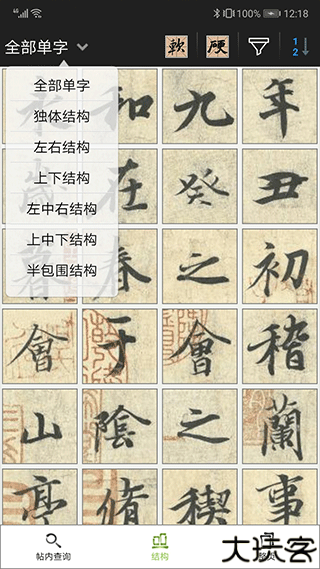 100% 12:18
全部单字
軟 硬
1
2
全部单字
独体结构
左右结构
上下结构
左中右结构
上中下结构
半包围结构
永 和 九 年
歲 在 癸 丑
暮 春 之 初
會 于 會 稽
山 陰 之 蘭
亭 脩 稧 事
帖内查询 结构
大玩客